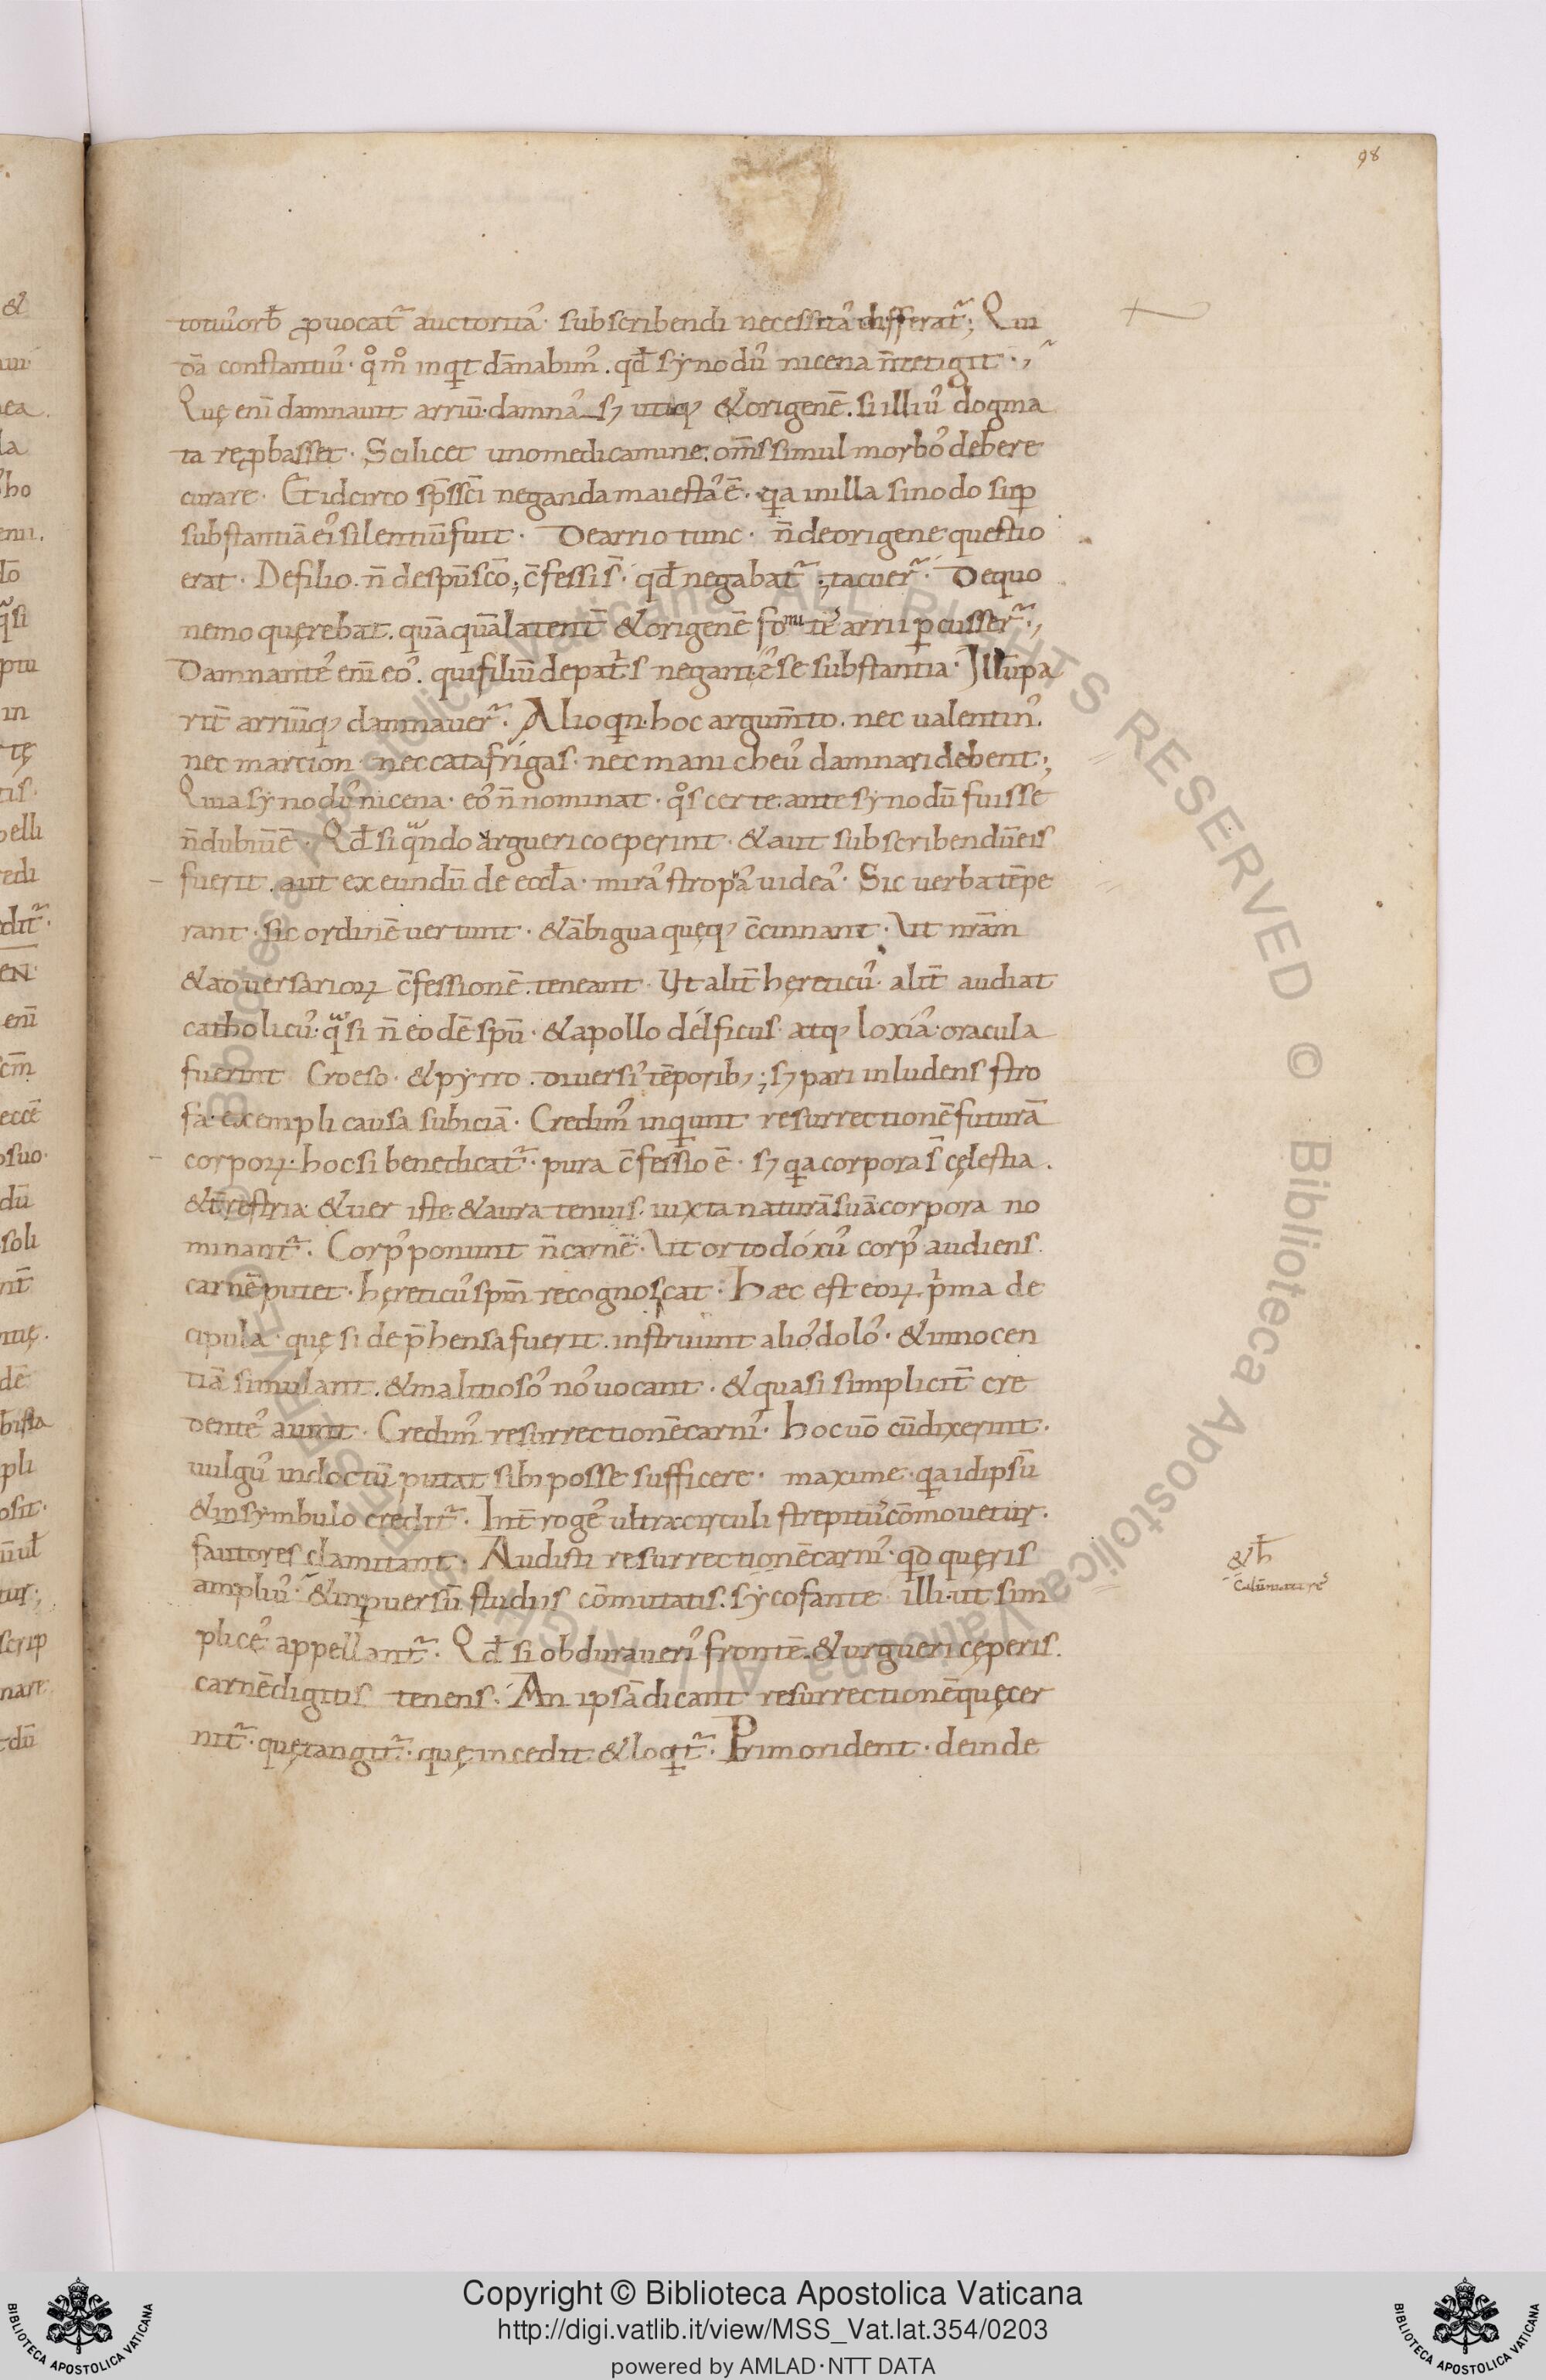 98
totiꝰ orƀ ꝓuocat᷑ auctoritaꝰ· subscribendi necessitaꝰ differat᷑; Qui
dā constantiuꝰ· qͦmͦ inqͥt dānabimꝰ. qđ synoduꝰ nicena n̄ tetigit·;
Quę enī damnauit arriū· damnaꝰ s; utiq; & origenē. si illiuꝰ dogma
ta reꝓbasset· Scilicet uno medicamine. om̄s simul morboꝰ debere
curare· Et idcirco sp̄s sc̄i neganda maiestaꝰ ē· qa in illa sinodo suꝑ
substantiā eiꝰ silentiū fuit· De arrio tunc· n̄ de origene questio
erat· De filio. n̄ de spū sc̄o; c̄fessi s̄· qđ negabat᷑·; tacuer᷑· De quo
nemo quęrebat. quāquā latent̄ & origenē fomͥteꝰ arrii ꝑcusser᷑·;
Damnanteꝰ enī eoꝰ. qui filiū de patͥs negant eꝰse substantia· Illū pa
rit̄ arriūq; damnauer᷑. Alioqͥn· hoc argum̄to. nec ualentinꝰ.
nec marcion· nec catafrigas· nec manicheuꝰ damnari debent;
Quia synoduꝰ nicena· eoꝰ n̄ nominat· qͦs certe. ante synodū fuisse
n̄ dubiū ē· Qđ si qͣndo argueri coeperint· & aut subscribendū eis
fuerit. aut exeundū de eccƚa· miraꝰ stropaꝰ uideaꝰ· Sic uerba tēpe
rant· sic ordinē uertunt· & ābigua quęq; c̄cinnant· Ut nr̄am
& aduersarioꝝ c̄fessionē. teneant· Ut alit̄ hęreticuꝰ· alit̄ audiat
catholicuꝰ· qͣsi n̄ eodē spū· & apollo délficus· atq; loxiaꝰ· oracula
fuerint Croeso· & pyrro. diuersiꝰ tēporib;; s; pari inludens stro
fa· exempli causa subiciā· Credimꝰ inqͥunt resurrectionē futurā
corpoꝝ· hoc si bene dicat᷑· pura c̄fessio ē· s; qa corpora s̄ cęlestia.
& t̄restria & aer iste· & aura tenuis· iuxta naturā suā corpora no
minant᷑. Corpꝰ ponunt n̄ carnē· Ut ortodóxuꝰ corpꝰ audiens
carnē putet· hęreticuꝰ spm̄ recognoscat· Hæc est eoꝝ pͥma de
cipula· quę si dep̄hensa fuerit. instruunt alioꝰ doloꝰ· & innocen
tiā simulant. & malitiosoꝰ noꝰ uocant· & quasi simplicit̄ cre
denteꝰ aiunt· Credimꝰ resurrectionē carniꝰ· Hoc uō cū dixerint·
uulguꝰ indoctū putat sibi posse sufficere· maxime· qa id ipsū
& in symbulo credit᷑· Int̄rogeꝰ ultra· circuli strepituꝰ cōmouetur·
fautores clamitant· Audisti resurrectionē carniꝰ· qđ quęris
ampliuꝰ· & in ꝑuersū studiis cōmutatis· sýcofante illi· ut sim
pliceꝰ appellant᷑· Qđ si obduraueriꝰ frontē. & urgueri cęperis.
carnē digitis tenens· An ipsā dicant resurrectionē quę cer
nit᷑· quę tangit᷑· quę incedit & loqͥt᷑· Primo rident· deinde
Copyright © Biblioteca Apostolica Vaticana
http://digi.vatlib.it/view/MSS_Vat.lat.354/0203
powered by AMLAD·NTT DATA